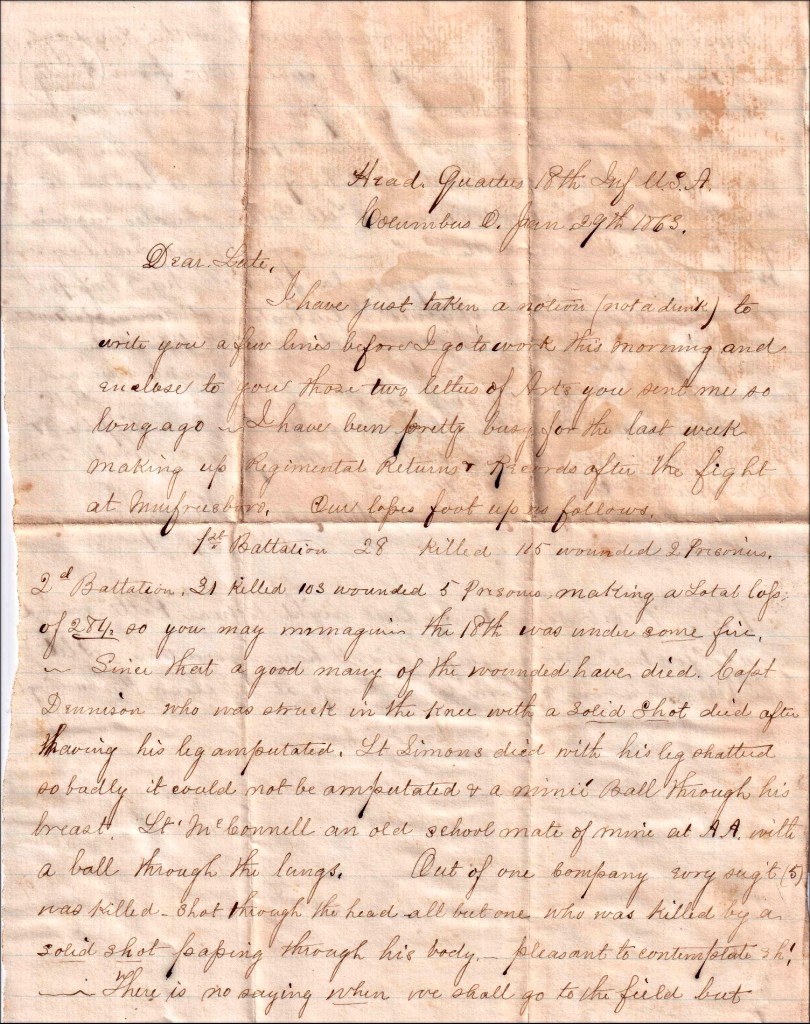 Head. Quarters 18th Inf U.S.A.
Columbus O. Jan 29th 1863.
Dear. Lute.
I have just taken a notion (not a drink) to
write you a few lines before I go to work this morning and
enclose to you those two letters of Arts you sent me so
long ago ~ I have been pretty busy for the last week
making up Regimental Returns & Records after the fight
at Murfreesboro. Our losses foot up as follows.
1st Battalion 28 Killed 115 wounded 2 Prisoners.
2d Battalion. 31 Killed 103 wounded 5 Prisoners, making a total loss
of 284. so you may immagine the 18th was under some fire.
~ Since that a good many of the wounded have died. Capt
Dennison who was struck in the knee with a solid shot died after
having his leg amputated. Lt Simons died with his leg shatterd
so badly it could not be amputated & a minié Ball through his
breast. Lt McConnell an old school mate of mine at A.A. with
a ball through the lungs. Out of one Company evry serg't (5)
was killed - shot through the head all but one who was killed by a
solid shot passing through his body. - pleasant to contemplate eh!
~ There is no saying when we shall go to the field but